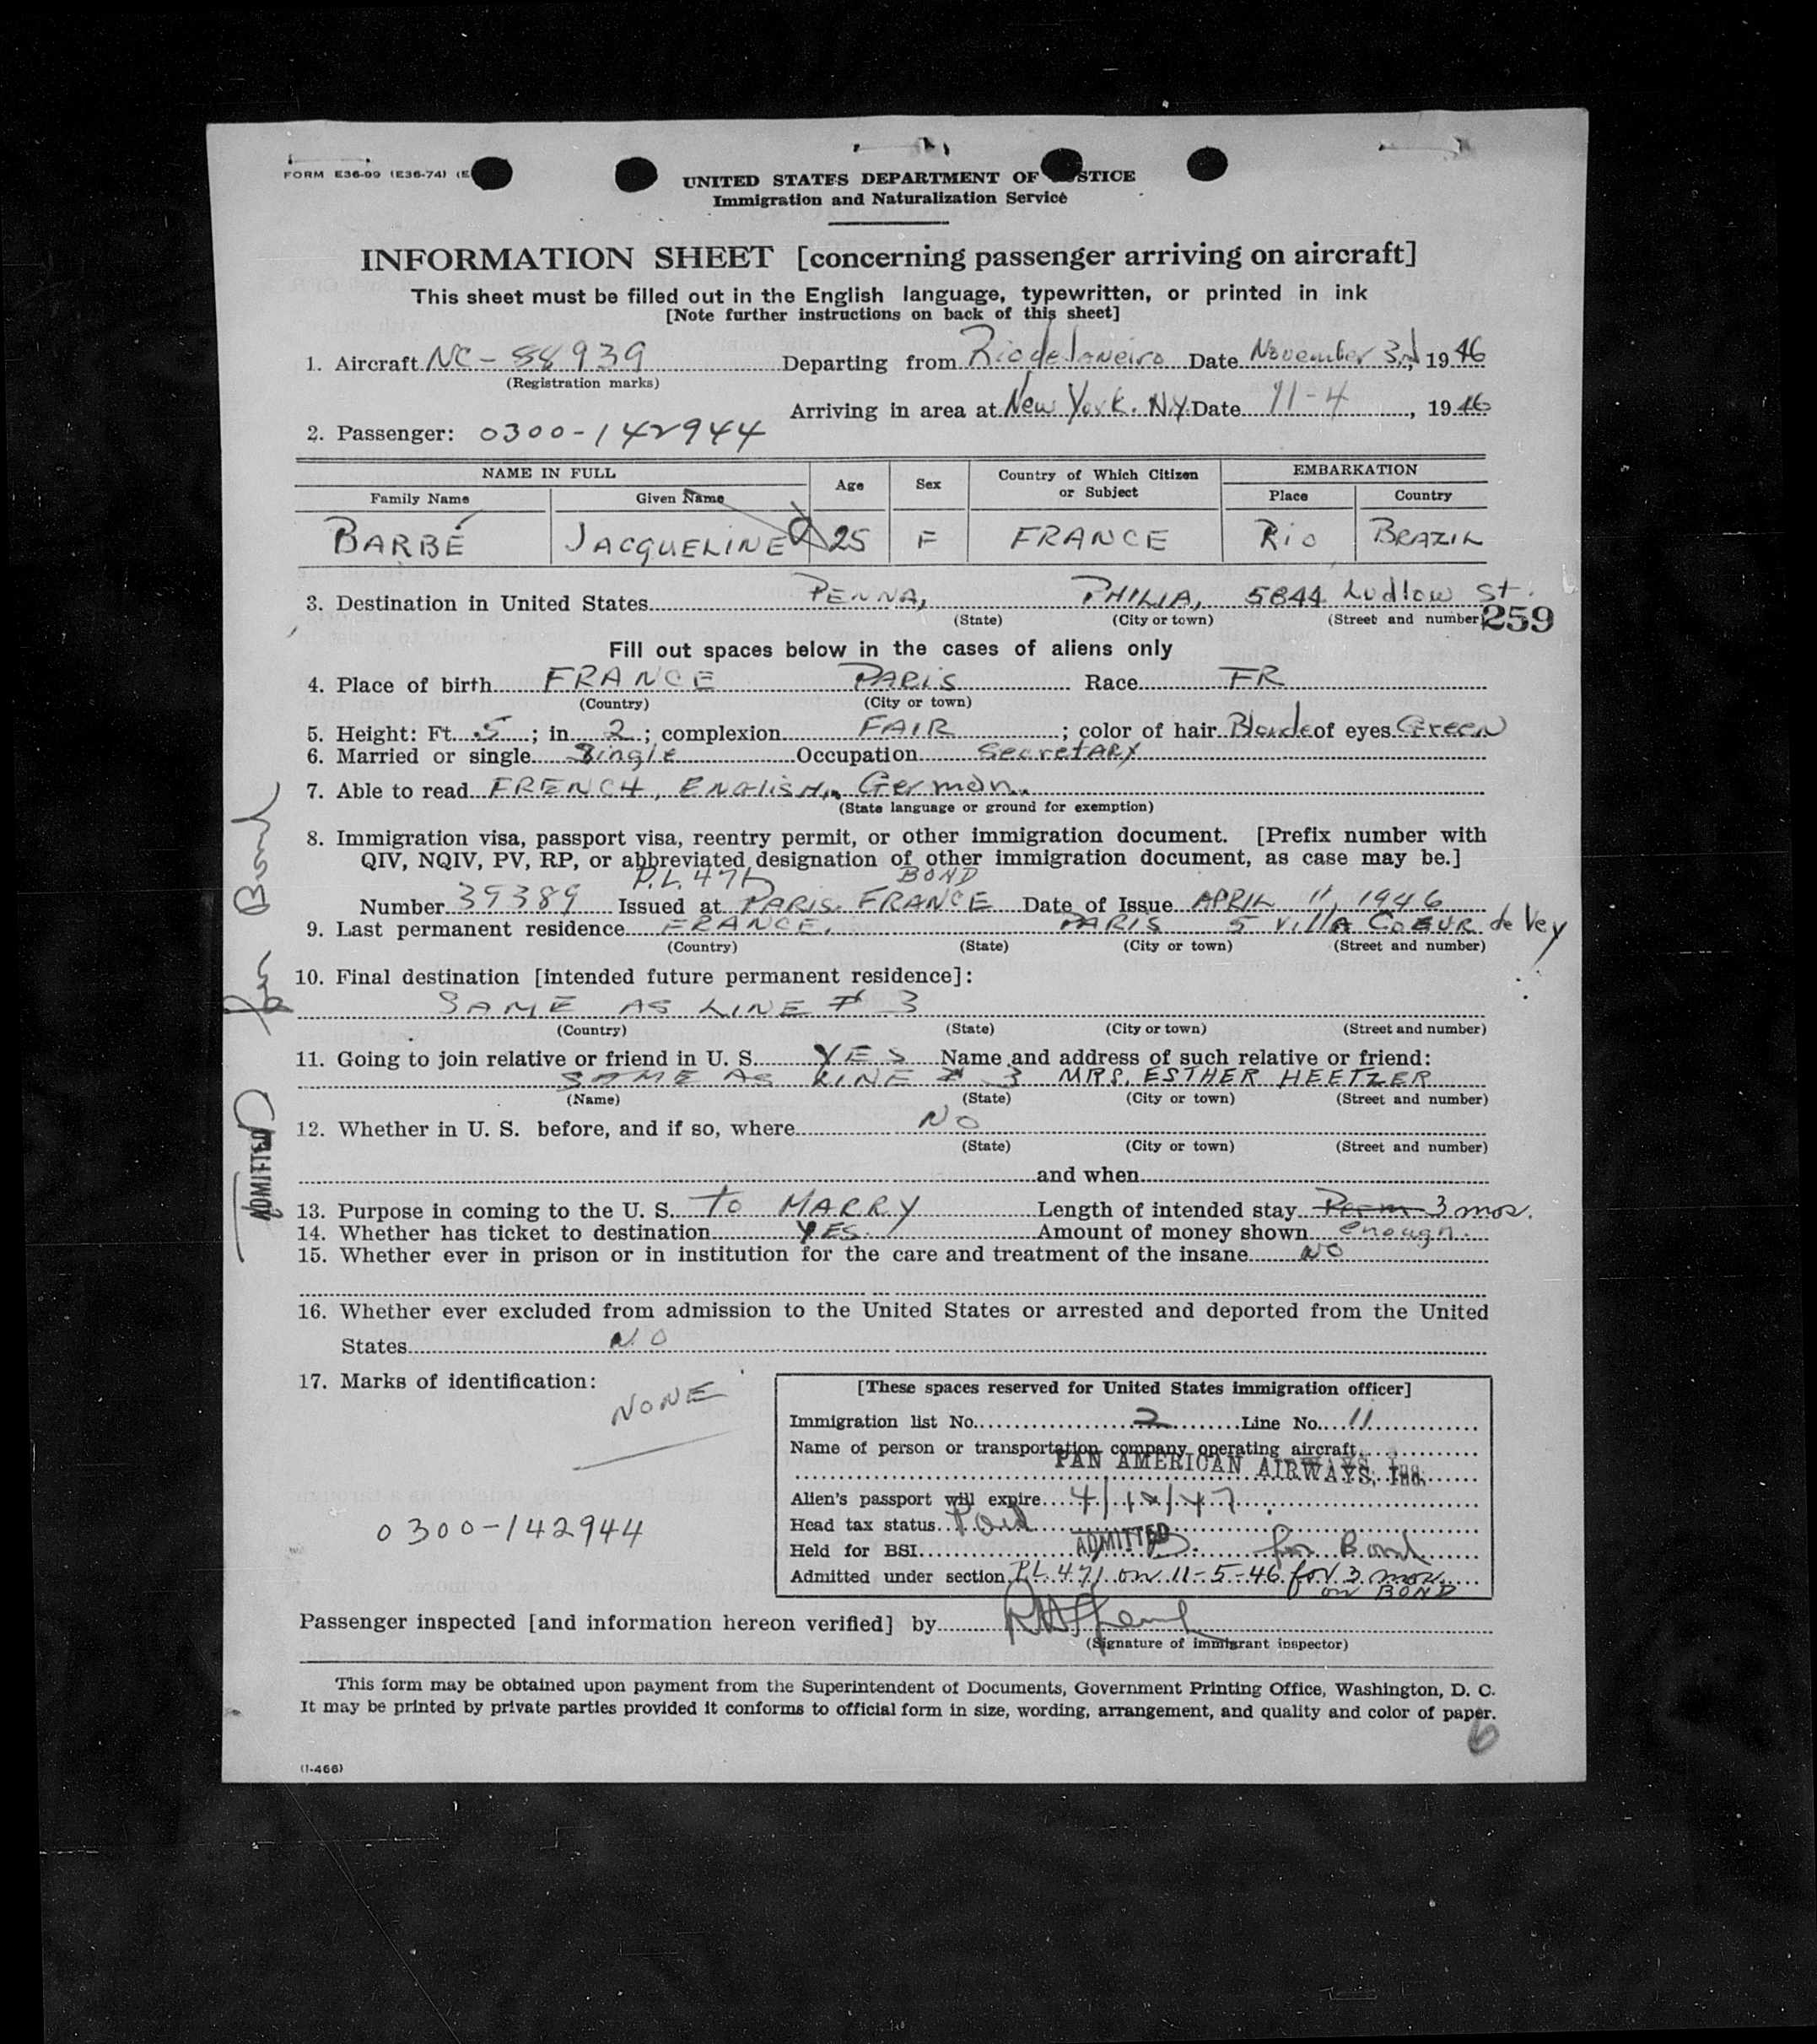 FORM E36-99 (E36-74) (E
UNITED STATES DEPARTMENT OF STICE
Immigration and Naturalization Service
INFORMATION SHEET [concerning passenger arriving on aircraft]
This sheet must be filled out in the English language, typewritten, or printed in ink
[Note further instructions on back of this sheet]
1. Aircraft NC-88939 Departing from Rio de Janeiro Date November 3rd, 1946
(Registration marks)
Arriving in area at New York. N.Y. Date 11-4, 1946
2. Passenger: 0300-142944
NAME IN FULL Age Sex Country of Which Citizen or Subject EMBARKATION
Family Name Given Name Place Country
BARBÉ JACQUELINE 25 F FRANCE Rio BRAZIL
3. Destination in United States PENNA, PHILIA, 5844 Ludlow St.
(State) (City or town) (Street and number)
259
Fill out spaces below in the cases of aliens only
4. Place of birth FRANCE PARIS Race FR
(Country) (City or town)
5. Height: Ft. 5; in 2; complexion FAIR; color of hair Blonde of eyes Green
6. Married or single Single Occupation Secretary
7. Able to read FRENCH, ENGLISH, German
(State language or ground for exemption)
8. Immigration visa, passport visa, reentry permit, or other immigration document. [Prefix number with
QIV, NQIV, PV, RP, or abbreviated designation of other immigration document, as case may be.]
P.L. 471 BOND
Number 39389 Issued at PARIS. FRANCE Date of Issue APRIL 11, 1946
9. Last permanent residence FRANCE, PARIS 5 Villa COEUR de Vey
(Country) (State) (City or town) (Street and number)
10. Final destination [intended future permanent residence]:
SAME AS LINE # 3
(Country) (State) (City or town) (Street and number)
11. Going to join relative or friend in U. S. YES Name and address of such relative or friend:
SAME AS LINE # 3 MRS. ESTHER HEETZER
(Name) (State) (City or town) (Street and number)
12. Whether in U. S. before, and if so, where NO
(State) (City or town) (Street and number)
and when
13. Purpose in coming to the U. S. To MARRY Length of intended stay Perm 3 mos.
14. Whether has ticket to destination YES. Amount of money shown enough.
15. Whether ever in prison or in institution for the care and treatment of the insane NO
16. Whether ever excluded from admission to the United States or arrested and deported from the United
States NO
17. Marks of identification:
NONE
0300-142944
[These spaces reserved for United States immigration officer]
Immigration list No. 2 Line No. 11
Name of person or transportation company operating aircraft
PAN AMERICAN AIRWAYS, Inc.
Alien's passport will expire 4/12/47
Head tax status Paid
Held for BSI ADMITTED for Bond
Admitted under section P.L. 471 on 11-5-46 for 3 mos.
on BOND
Passenger inspected [and information hereon verified] by
(Signature of immigrant inspector)
This form may be obtained upon payment from the Superintendent of Documents, Government Printing Office, Washington, D. C.
It may be printed by private parties provided it conforms to official form in size, wording, arrangement, and quality and color of paper.
6
(I-466)
for Bond
ADMITTED